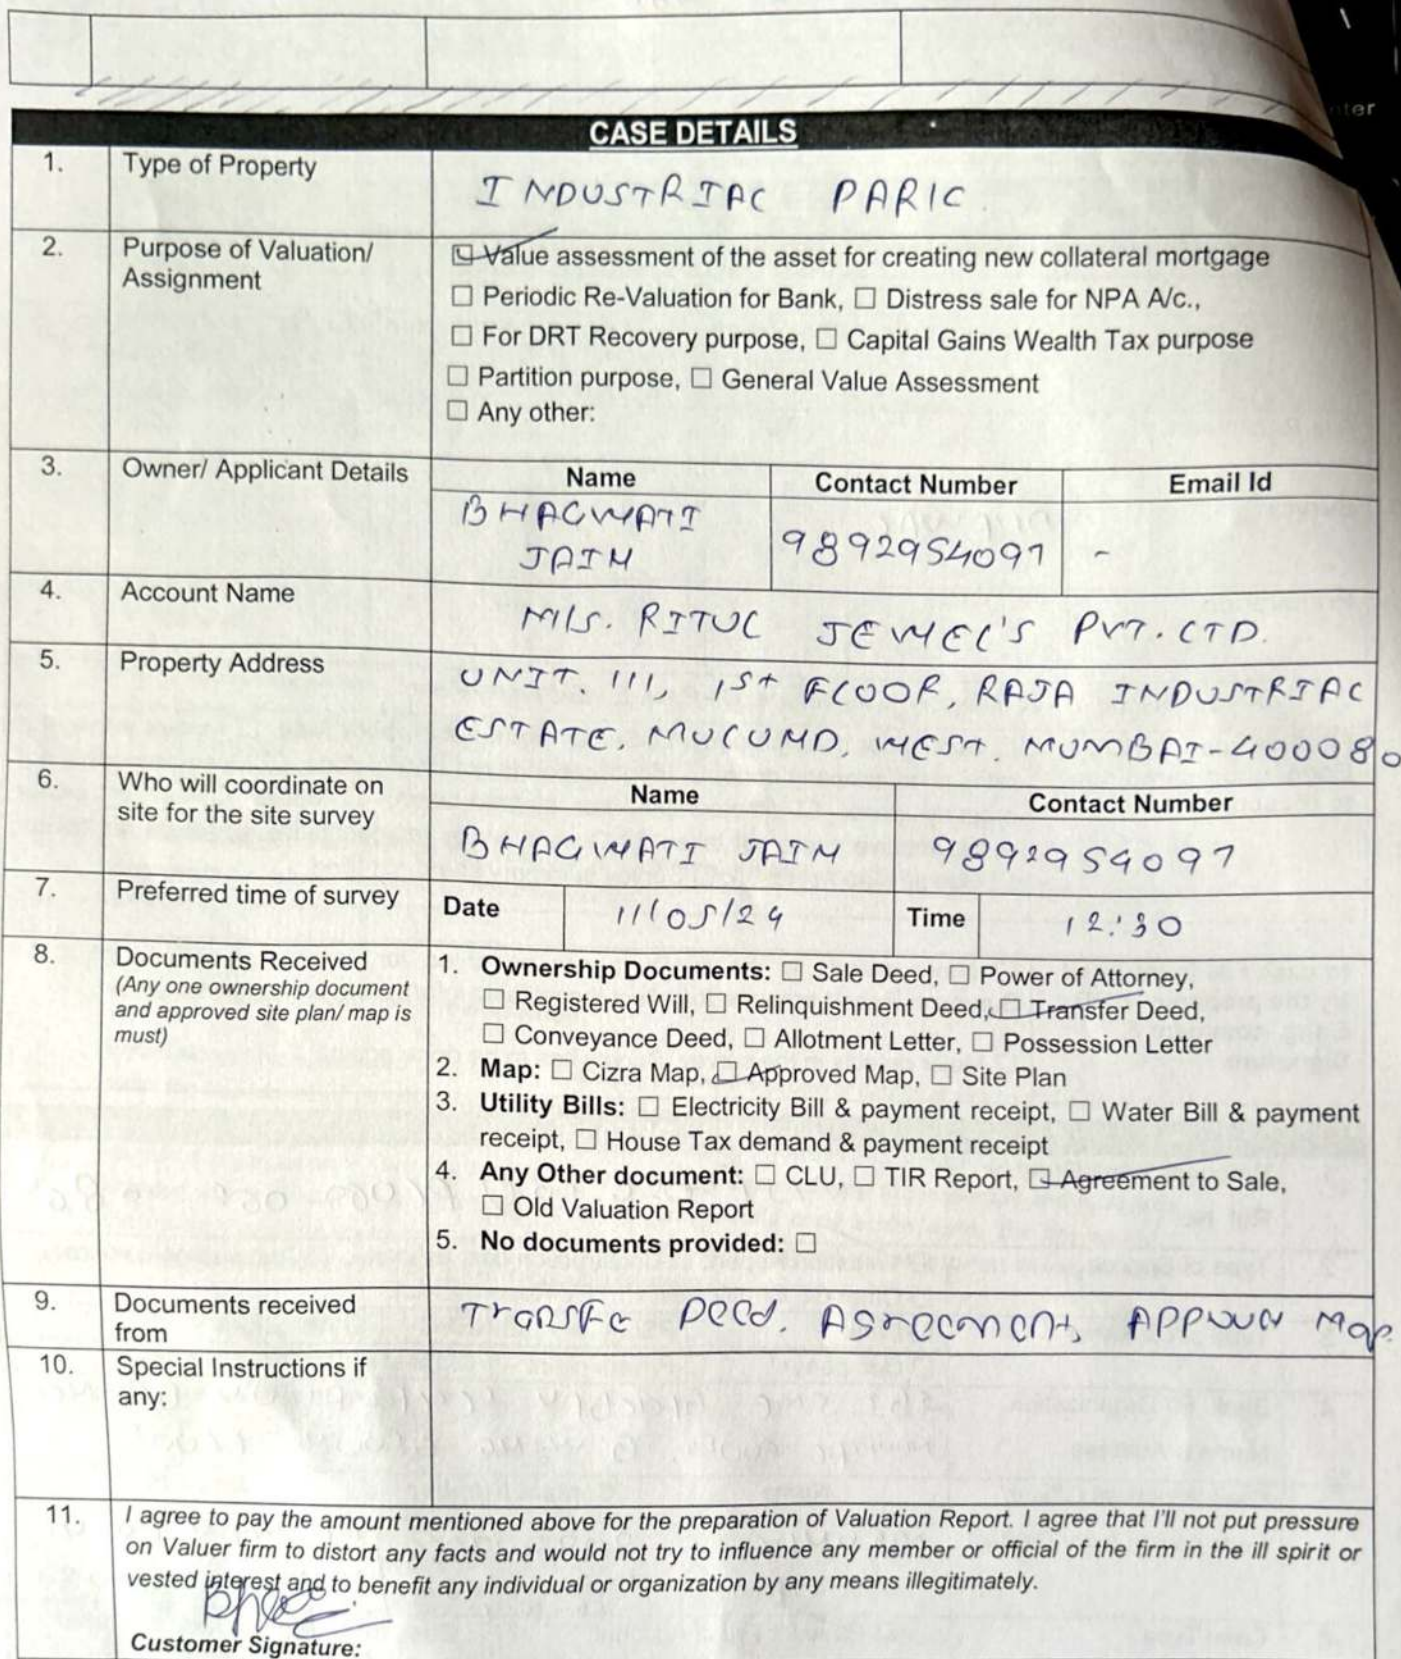 CASE DETAILS
1. Type of Property INDUSTRIAL PARK
2. Purpose of Valuation/ Assignment
☑ Value assessment of the asset for creating new collateral mortgage
☐ Periodic Re-Valuation for Bank, ☐ Distress sale for NPA A/c.,
☐ For DRT Recovery purpose, ☐ Capital Gains Wealth Tax purpose
☐ Partition purpose, ☐ General Value Assessment
☐ Any other:
3. Owner/ Applicant Details
Name Contact Number Email Id
BHAGWATI
JAIN 9892954097 -
4. Account Name M/S. RITUL JEWEL'S PVT. LTD.
5. Property Address
UNIT. 111, 1st FLOOR, RAJA INDUSTRIAL
ESTATE, MULUND, WEST. MUMBAI-400080
6. Who will coordinate on
site for the site survey
Name Contact Number
BHAGWATI JAIN 9892954097
7. Preferred time of survey Date 11/05/24 Time 12:30
8. Documents Received
(Any one ownership document
and approved site plan/ map is
must)
1. Ownership Documents: ☐ Sale Deed, ☐ Power of Attorney,
☐ Registered Will, ☐ Relinquishment Deed, ☑ Transfer Deed,
☐ Conveyance Deed, ☐ Allotment Letter, ☐ Possession Letter
2. Map: ☐ Cizra Map, ☑ Approved Map, ☐ Site Plan
3. Utility Bills: ☐ Electricity Bill & payment receipt, ☐ Water Bill & payment
receipt, ☐ House Tax demand & payment receipt
4. Any Other document: ☐ CLU, ☐ TIR Report, ☑ Agreement to Sale,
☐ Old Valuation Report
5. No documents provided: ☐
9. Documents received
from
Deed. Agreement, Map.
10. Special Instructions if
any:
11. I agree to pay the amount mentioned above for the preparation of Valuation Report. I agree that I'll not put pressure
on Valuer firm to distort any facts and would not try to influence any member or official of the firm in the ill spirit or
vested interest and to benefit any individual or organization by any means illegitimately.
Customer Signature: